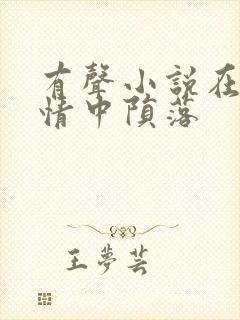 有聲小說在
情中隕落
王夢芸